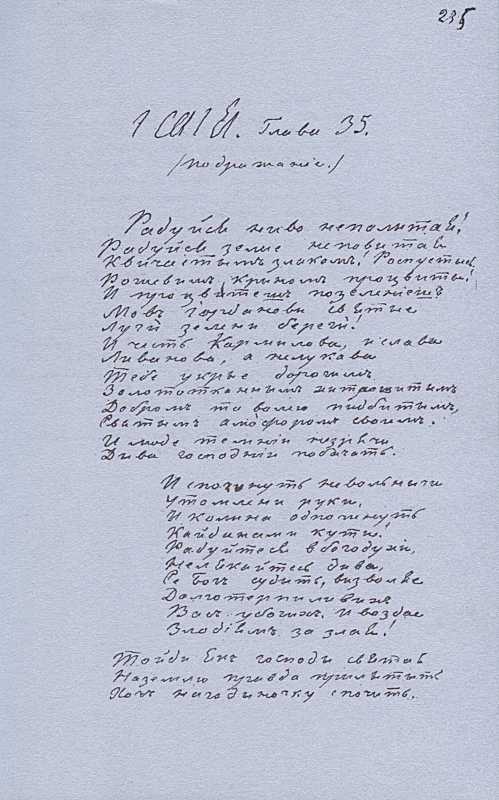 235
Ісаія. Глава 35.
/подражаніе./
Радуйся ниво неполитая!
Радуйся земле неповитая
Квичастымъ злакомъ! Роспустысь
Рожевымъ крыномъ процвиты!
И процвитешъ позеленіешъ
Мовъ Іорданови святые
Луги зелени береги!
И честь Кармилова, и слава
Ливанова, а нелукава
Тебе укрые дорогимъ
Золототканнымъ
Добромъ та волею пидбитымъ,
Святымъ омофоромъ своимъ.
И люде темнiи незрячи
Дива господнiи побачать.
И спочинуть невольничи
Утомлени руки,
И колина одпочинуть
Кайданами кути!
Радуйтеся вбогодухи,
Нелякайтесь дива,
Се Богъ судить, визволяе
Долготерпиливихъ
Васъ убогихъ. И воздае
Злодіямъ за злая!
Тойди якъ господи святая
Наземлю правда прилытыть
Хочь нагодыночку спочить.